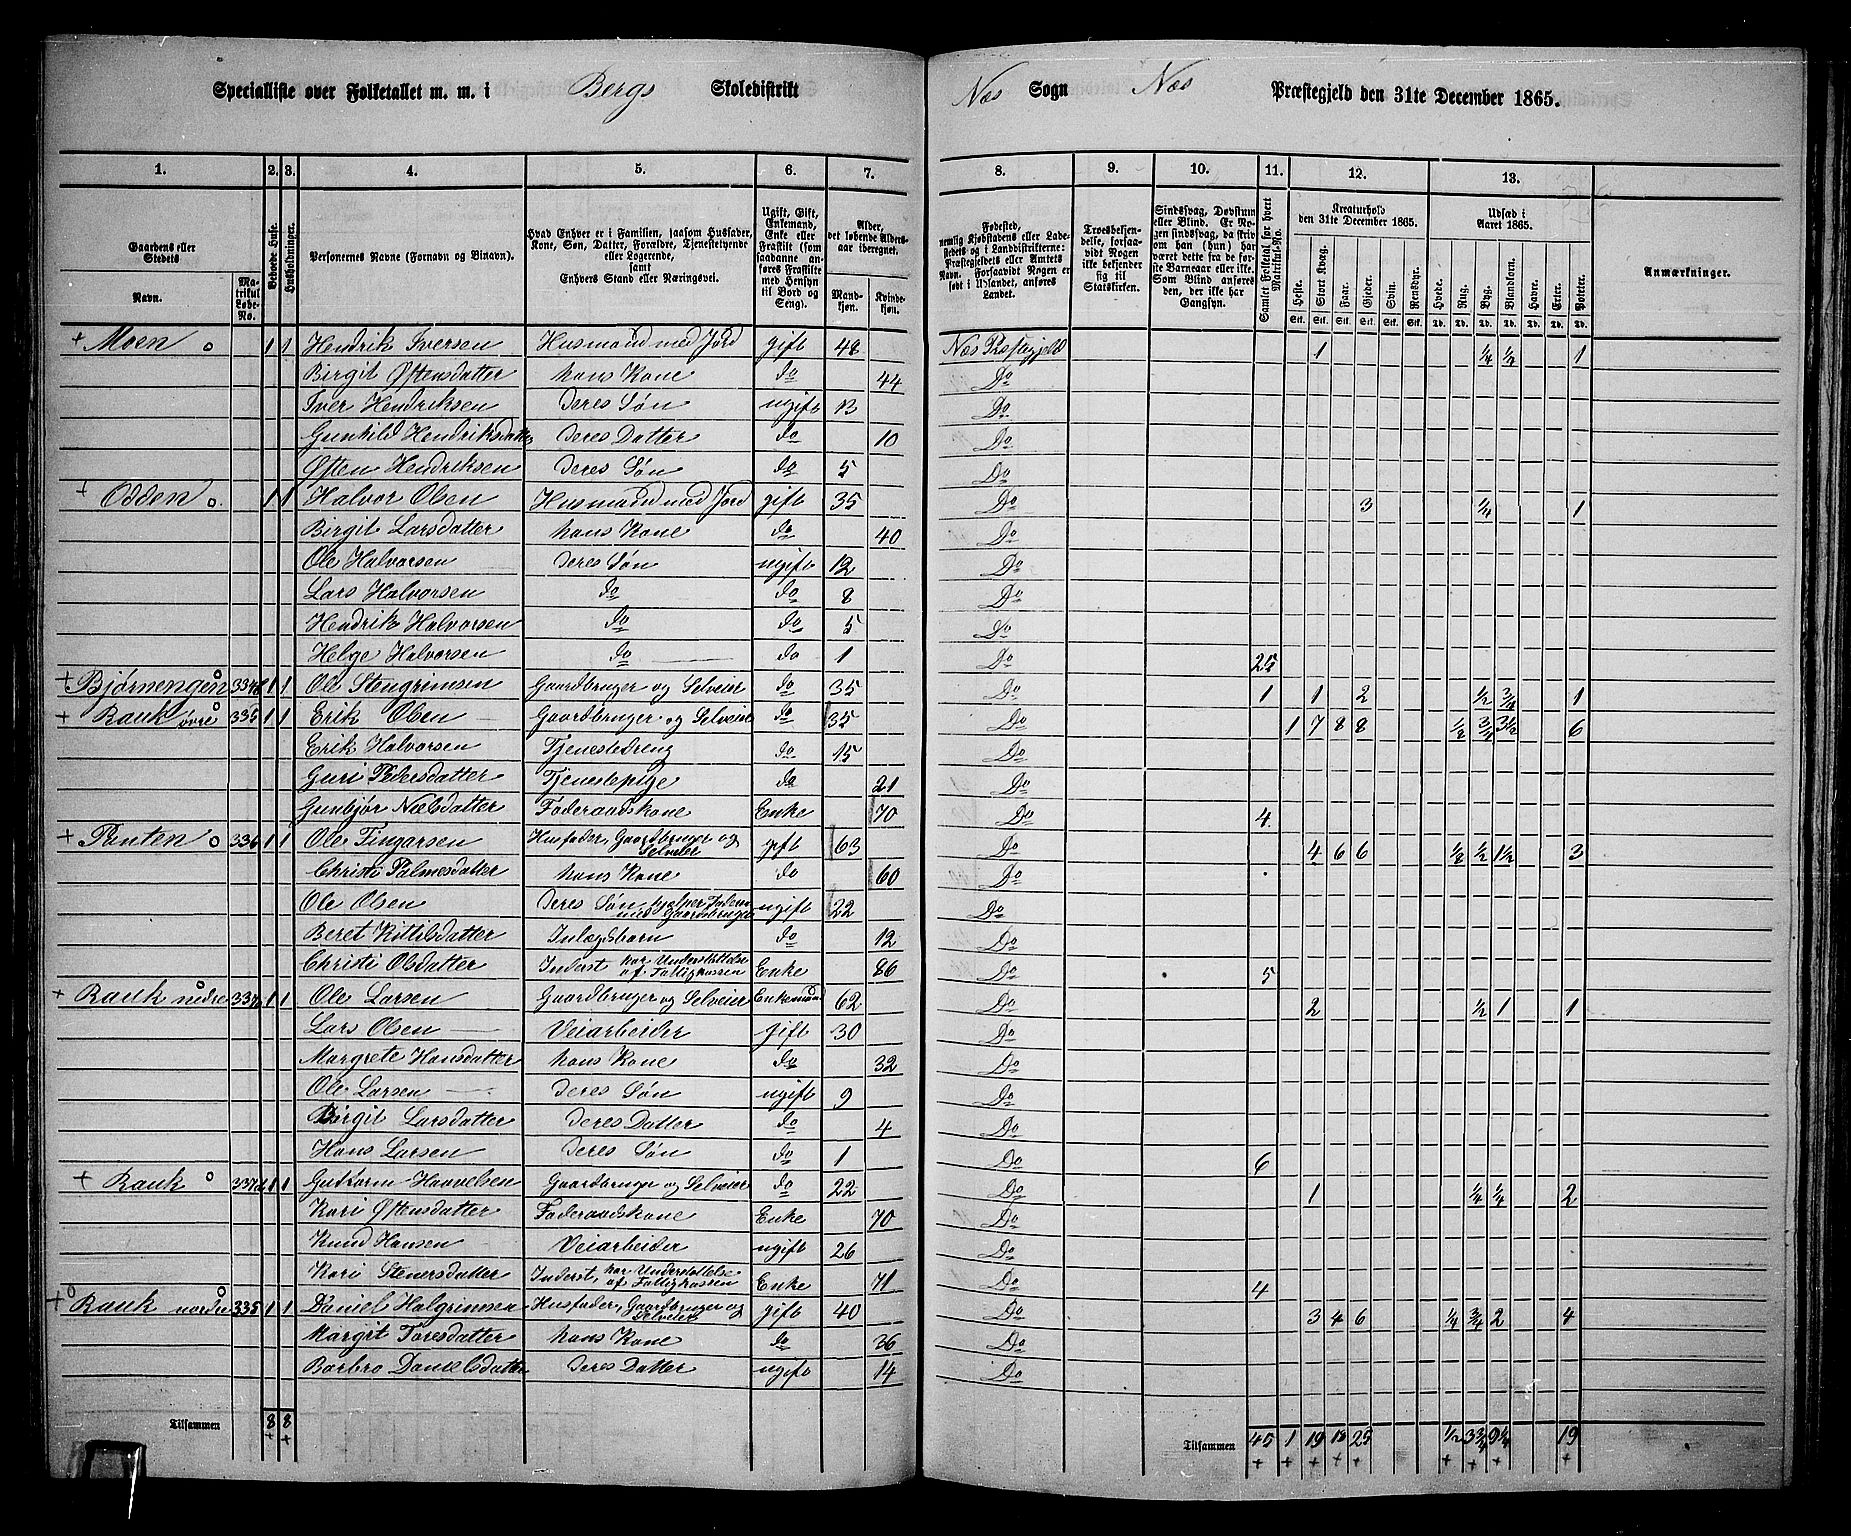 Specialliste over Folketallet m. m. i Bergs Skoledistrikt Næs Sogn Næs Præstegjeld den 31te December 1865.
1. 2. 3. 4. 5. 6. 7. 8. 9. 10. 11. 12. 13.
Gaardens eller Stedets
Navn.
Matrikul Løbe-No.
Beboede Huse.
Husholdninger.
Personernes Navne (Fornavn og Binavn).
Hvad Enhver er i Familien, saasom Husfader, Kone, Søn, Datter, Forældre, Tjenestetyende eller Logerende, samt Enhvers Stand eller Næringsvei.
Ugift, Gift, Enkemand, Enke eller Fraskilt (som saadanne anføres Fraskilte med Hensyn til Bord og Seng).
Alder, det løbende Aldersaar iberegnet.
Mandkjøn. Kvindekjøn.
Fødested, nemlig Kjøbstadens eller Ladestedets og i Landdistrikterne: Præstegjeldets eller Amtets Navn. Forsaavidt Nogen er født i Udlandet, anføres Landet.
Troesbekjendelse, forsaavidt Nogen ikke bekjender sig til Statskirken.
Sindssvag, Døvstum eller Blind. Er Nogen sindssvag, da skriv om han (hun) har været dette fra de første Barneaar eller ikke. Som Blind anføres den, der ikke har Gangsyn.
Samlet Folketal for hvert Matrikul-No.
Kreaturhold den 31te December 1865.
Heste. Stort Kvæg. Faar. Gjeder. Svin. Rensdyr.
Stk. Stk. Stk. Stk. Stk. Stk.
Udsæd i Aaret 1865.
Hvede. Rug. Byg. Blandkorn. Havre. Erter. Poteter.
Td. Td. Td. Td. Td. Td. Td.
Anmærkninger.
+ Moen o 1 1 Hendrik Iversen Husmand med Jord gift 48 Næs Præstegjeld 1 ¼ ¼ 1
Birgit Østensdatter hans Kone do 44 Do
Iver Hendriksen deres Søn ugift 13 Do
Gunhild Hendriksdatter deres Datter do 10 Do
Østen Hendriksen deres Søn do 5 Do
+ Odden o 1 1 Halvor Olsen Husmand med Jord gift 35 Do 3 ¼ 1
Birgit Larsdatter hans Kone do 40 Do
Ole Halvorsen deres Søn ugift 12 Do
Lars Halvorsen do do 8 Do
Hendrik Halvorsen do do 5 Do
Helge Halvorsen do do 1 Do 25
+ Bjørnengen 334 1 1 Ole Stengrimsen Gaardbruger og Selveier do 35 Do 1 1 2 ½ ¾ 1
+ Rauk øvre 335 1 1 Erik Olsen Gaardbruger og Selveier do 35 Do 1 7 8 8 ½ ¾ 3½ 6
Erik Halvorsen Tjenestedreng do 15 Do
Guri Pedersdatter Tjenestepige do 21 Do
Gunbjør Nielsdatter Føderaadskone Enke 70 Do 4
+ Ponten o 336 1 1 Ole Fingarsen Husfader, Gaardbruger og Selveier gift 63 Do 4 6 6 ½ 1½ 3
Christi Palmesdatter hans Kone do 60 Do
Ole Olsen deres Søn, hjelper Faderen med Gaardsbruget ugift 22 Do
Beret Kittilsdatter Inlægsbarn do 12 Do
Christi Olsdatter Inderst har Understøttelse af Fattigkassen Enke 86 Do 5
+ Rauk nedre 337 1 1 Ole Larsen Gaardbruger og Selveier Enkemand 62 Do 2 ½ 1 1
Lars Olsen Veiarbeider gift 30 Do
Margrete Hansdatter hans Kone do 32 Do
Ole Larsen deres Søn ugift 9 Do
Birgit Larsdatter deres Datter do 4 Do
Hans Larsen deres Søn do 1 Do 6
+ Rauk o 337 1 1 Guttorm Haavelsen Gaardbruger og Selveier do 22 Do 1 ¼ ¼ 2
Kari Østensdatter Føderaadskone Enke 70 Do
Knud Hansen Veiarbeider ugift 26 Do
Kari Stenersdatter Inderst, har Understøttelse af Fattigkassen Enke 71 Do 4
+ Rauk nordre 335 1 1 Daniel Halgrimsen Husfader, Gaardbruger og Selveier gift 40 Do 3 4 6 ¼ ¾ 2 4
Margit Toresdatter hans Kone do 36 Do
Barbro Danielsdatter deres Datter ugift 14 Do
Tilsammen 8 8 Tilsammen 45 1 19 18 25 ½ 3¾ 9¼ 19